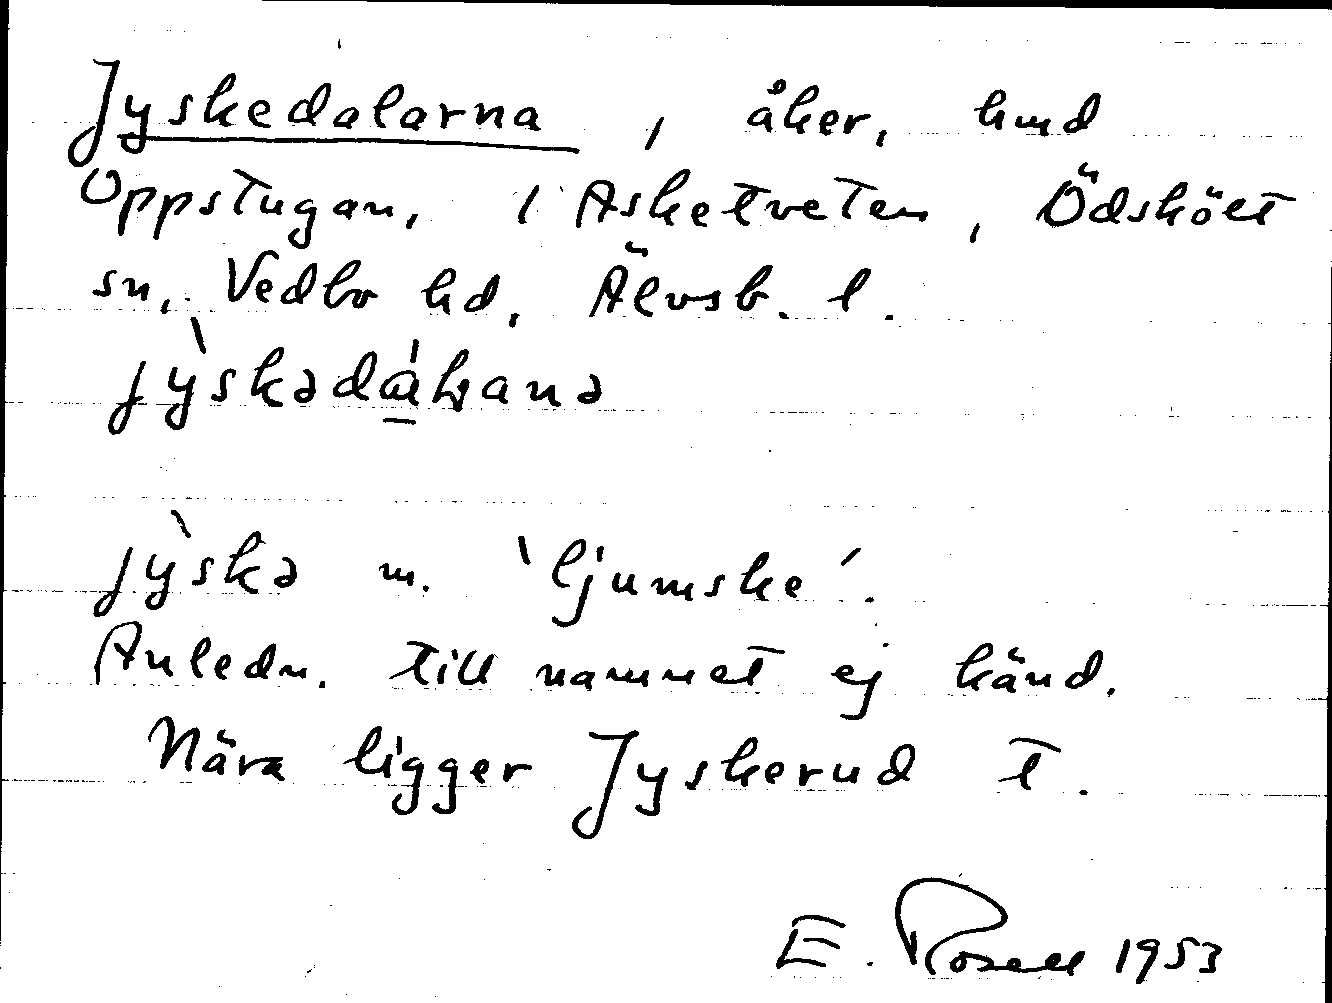 Jyskedalarna, åker, hmd
Oppstugan, 1 Asketveten, Ödskölt
sn, Vedbo hd, Älvsb. l.
jỳskədálana
jỳskə m. 'ljumske'.
Anledn. till namnet ej känd.
Nära ligger Jyskerud t.
E. Rosell 1953